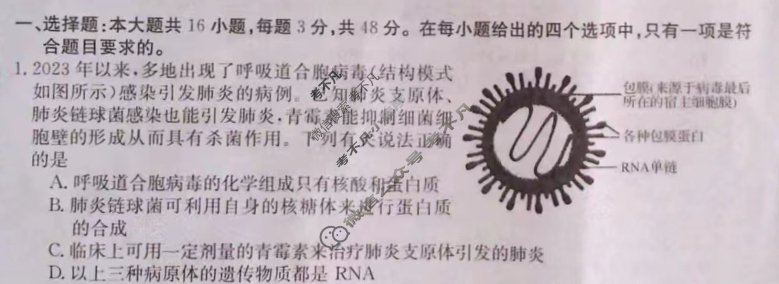 一、选择题:本大题共 16 小题,每题 3 分,共 48 分。在每小题给出的四个选项中,只有一项是符
合题目要求的。
1. 2023 年以来,多地出现了呼吸道合胞病毒(结构模式
如图所示)感染引发肺炎的病例。已知肺炎支原体、
肺炎链球菌感染也能引发肺炎,青霉素能抑制细菌细
胞壁的形成从而具有杀菌作用。下列有关说法正确
的是
A. 呼吸道合胞病毒的化学组成只有核酸和蛋白质
B. 肺炎链球菌可利用自身的核糖体来进行蛋白质
的合成
C. 临床上可用一定剂量的青霉素来治疗肺炎支原体引发的肺炎
D. 以上三种病原体的遗传物质都是 RNA
包膜(来源于病毒最后
所在的宿主细胞膜)
各种包膜蛋白
RNA单链